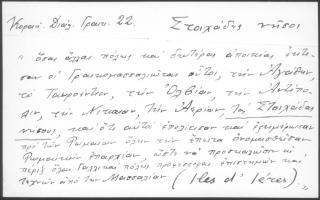 Κοραή. Διάλ. Γραικ. 22. Στοιχάδες νῆσοι
" ὅσας ἄλλας πόλεις καὶ δευτέρας ἀποικίας ἔκτι-
σαν οἱ Γραικομασσαλιῶται αὐτοί, τὴν Ἀγάθην,
τὸ Ταυρόεντον, τὴν Ὀλβίαν, τὴν Ἀντίπο-
λιν, τὴν Νίκαιαν, τὴν Ἀερίαν, τὰς Στοιχάδας
νήσους, καὶ ὅτι αὐτοὶ ἐπολίτισαν καὶ ἐξημέρωσαν
πρὸ τῶν Ῥωμαίων ὅλην τὴν ἔπειτα ὀνομασθεῖσαν
Ῥωμαϊκὴν ἐπαρχίαν, ὥστε νὰ προσκαλῶσιν αἱ
περὶξ ὅλαι Γαλλικαὶ πόλεις προφέσσορας ἐπιστημῶν καὶ
τεχνῶν ἀπὸ τὴν Μασσαλίαν (Iles d' Ières)."